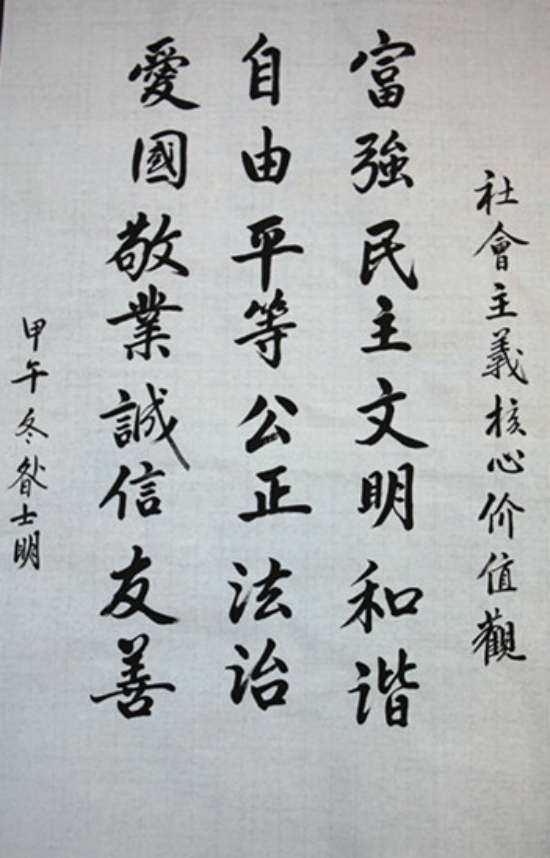 社會主義核心价值觀
富強民主文明和谐
自由平等公正法治
愛國敬業誠信友善
甲午冬昝士明